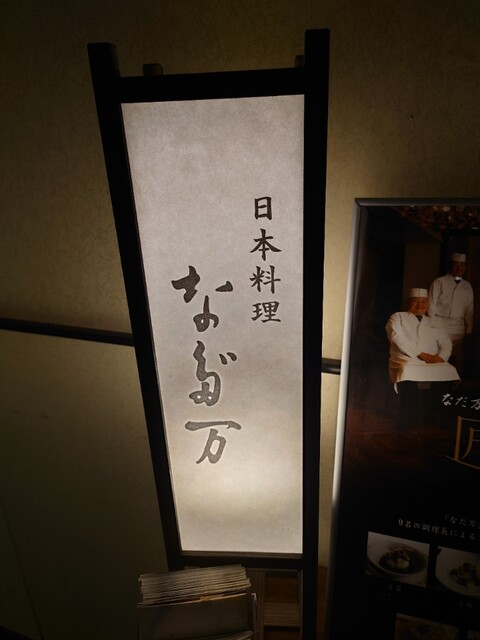 日本料理
なだ万
なだ万
匠
「なだ万」
9名の調理長による